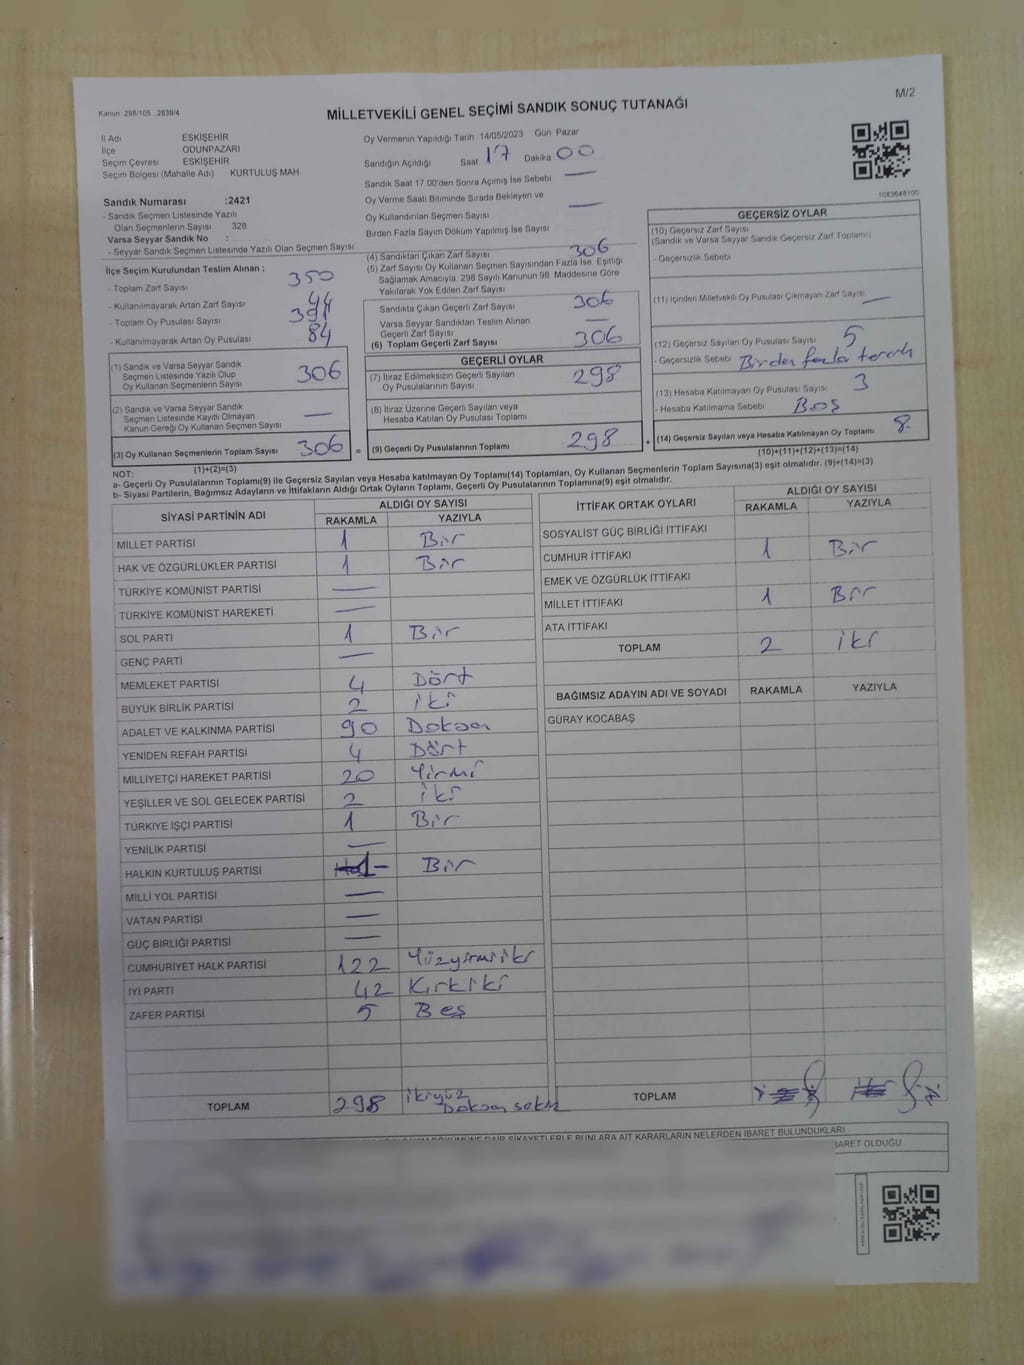 M/2
Kanun 298/105 . 2839/4
MİLLETVEKİLİ GENEL SEÇİMİ SANDIK SONUÇ TUTANAĞI
İl Adı ESKİŞEHİR
İlçe ODUNPAZARI
Seçim Çevresi ESKİŞEHİR
Seçim Bölgesi (Mahalle Adı) : KURTULUŞ MAH
Oy Vermenin Yapıldığı Tarih 14/05/2023 Gün Pazar
Sandığın Açıldığı Saat 17 Dakika 00
Sandık Saat 17.00'den Sonra Açımış İse Sebebi —
Oy Verme Saati Bitiminde Sırada Bekleyen ve
Oy Kullandırılan Seçmen Sayısı —
Birden Fazla Sayım Döküm Yapılmış İse Sayısı
1083648100
Sandık Numarası :2421
- Sandık Seçmen Listesinde Yazılı
Olan Seçmenlerin Sayısı 328
Varsa Seyyar Sandık No :
- Seyyar Sandık Seçmen Listesinde Yazılı Olan Seçmen Sayısı
İlçe Seçim Kurulundan Teslim Alınan :
- Toplam Zarf Sayısı 350
- Kullanılmayarak Artan Zarf Sayısı 44
- Toplam Oy Pusulası Sayısı 391
- Kullanılmayarak Artan Oy Pusulası 84
(1) Sandık ve Varsa Seyyar Sandık
Seçmen Listesinde Yazılı Olup
Oy Kullanan Seçmenlerin Sayısı 306
(2) Sandık ve Varsa Seyyar Sandık
Seçmen Listesinde Kayıtlı Olmayan
Kanun Gereği Oy Kullanan Seçmen Sayısı —
(3) Oy Kullanan Seçmenlerin Toplam Sayısı 306 =
(1)+(2)=(3)
(4) Sandıktan Çıkan Zarf Sayısı 306
(5) Zarf Sayısı Oy Kullanan Seçmen Sayısından Fazla İse Eşitliği
Sağlamak Amacıyla 298 Sayılı Kanunun 98. Maddesine Göre
Yakılarak Yok Edilen Zarf Sayısı
Sandıkta Çıkan Geçerli Zarf Sayısı 306
Varsa Seyyar Sandıktan Teslim Alınan
Geçerli Zarf Sayısı —
(6) Toplam Geçerli Zarf Sayısı 306
GEÇERLİ OYLAR
(7) İtiraz Edilmeksizin Geçerli Sayılan
Oy Pusulalarının Sayısı 298
(8) İtiraz Üzerine Geçerli Sayılan veya
Hesaba Katılan Oy Pusulası Toplamı
(9) Geçerli Oy Pusulalarının Toplamı 298 +
GEÇERSİZ OYLAR
(10) Geçersiz Zarf Sayısı
(Sandık ve Varsa Seyyar Sandık Geçersiz Zarf Toplamı)
- Geçersizlik Sebebi
(11) İçinden Milletvekili Oy Pusulası Çıkmayan Zarf Sayısı —
(12) Geçersiz Sayılan Oy Pusulası Sayısı 5
- Geçersizlik Sebebi Birden fazla tercih
(13) Hesaba Katılmayan Oy Pusulası Sayısı 3
- Hesaba Katılmama Sebebi Boş
(14) Geçersiz Sayılan veya Hesaba Katılmayan Oy Toplamı 8
(10)+(11)+(12)+(13)=(14)
NOT:
a- Geçerli Oy Pusulalarının Toplamı(9) ile Geçersiz Sayılan veya Hesaba katılmayan Oy Toplamı(14) Toplamları, Oy Kullanan Seçmenlerin Toplam Sayısına(3) eşit olmalıdır. (9)+(14)=(3)
b- Siyasi Partilerin, Bağımsız Adayların ve İttifakların Aldığı Ortak Oyların Toplamı, Geçerli Oy Pusulalarının Toplamına(9) eşit olmalıdır.
SİYASİ PARTİNİN ADI ALDIĞI OY SAYISI
RAKAMLA YAZIYLA
MİLLET PARTİSİ 1 Bir
HAK VE ÖZGÜRLÜKLER PARTİSİ 1 Bir
TÜRKİYE KOMÜNİST PARTİSİ —
TÜRKİYE KOMÜNİST HAREKETİ —
SOL PARTİ 1 Bir
GENÇ PARTİ —
MEMLEKET PARTİSİ 4 Dört
BÜYÜK BİRLİK PARTİSİ 2 iki
ADALET VE KALKINMA PARTİSİ 90 Doksan
YENİDEN REFAH PARTİSİ 4 Dört
MİLLİYETÇİ HAREKET PARTİSİ 20 Yirmi
YEŞİLLER VE SOL GELECEK PARTİSİ 2 iki
TÜRKİYE İŞÇİ PARTİSİ 1 Bir
YENİLİK PARTİSİ —
HALKIN KURTULUŞ PARTİSİ 1 Bir
MİLLİ YOL PARTİSİ —
VATAN PARTİSİ —
GÜÇ BİRLİĞİ PARTİSİ —
CUMHURİYET HALK PARTİSİ 122 Yüzyirmiiki
İYİ PARTİ 42 Kırkiki
ZAFER PARTİSİ 5 Beş
TOPLAM 298 ikiyüz
Doksan sekiz
İTTİFAK ORTAK OYLARI ALDIĞI OY SAYISI
RAKAMLA YAZIYLA
SOSYALİST GÜÇ BİRLİĞİ İTTİFAKI
CUMHUR İTTİFAKI 1 Bir
EMEK VE ÖZGÜRLÜK İTTİFAKI
MİLLET İTTİFAKI 1 Bir
ATA İTTİFAKI
TOPLAM 2 iki
BAĞIMSIZ ADAYIN ADI VE SOYADI RAKAMLA YAZIYLA
GÜRAY KOCABAŞ
TOPLAM
DAİR ŞİKAYETLERLE BUNLARA AİT KARARLARIN NELERDEN İBARET BULUNDUKLARI
İBARET OLDUĞU